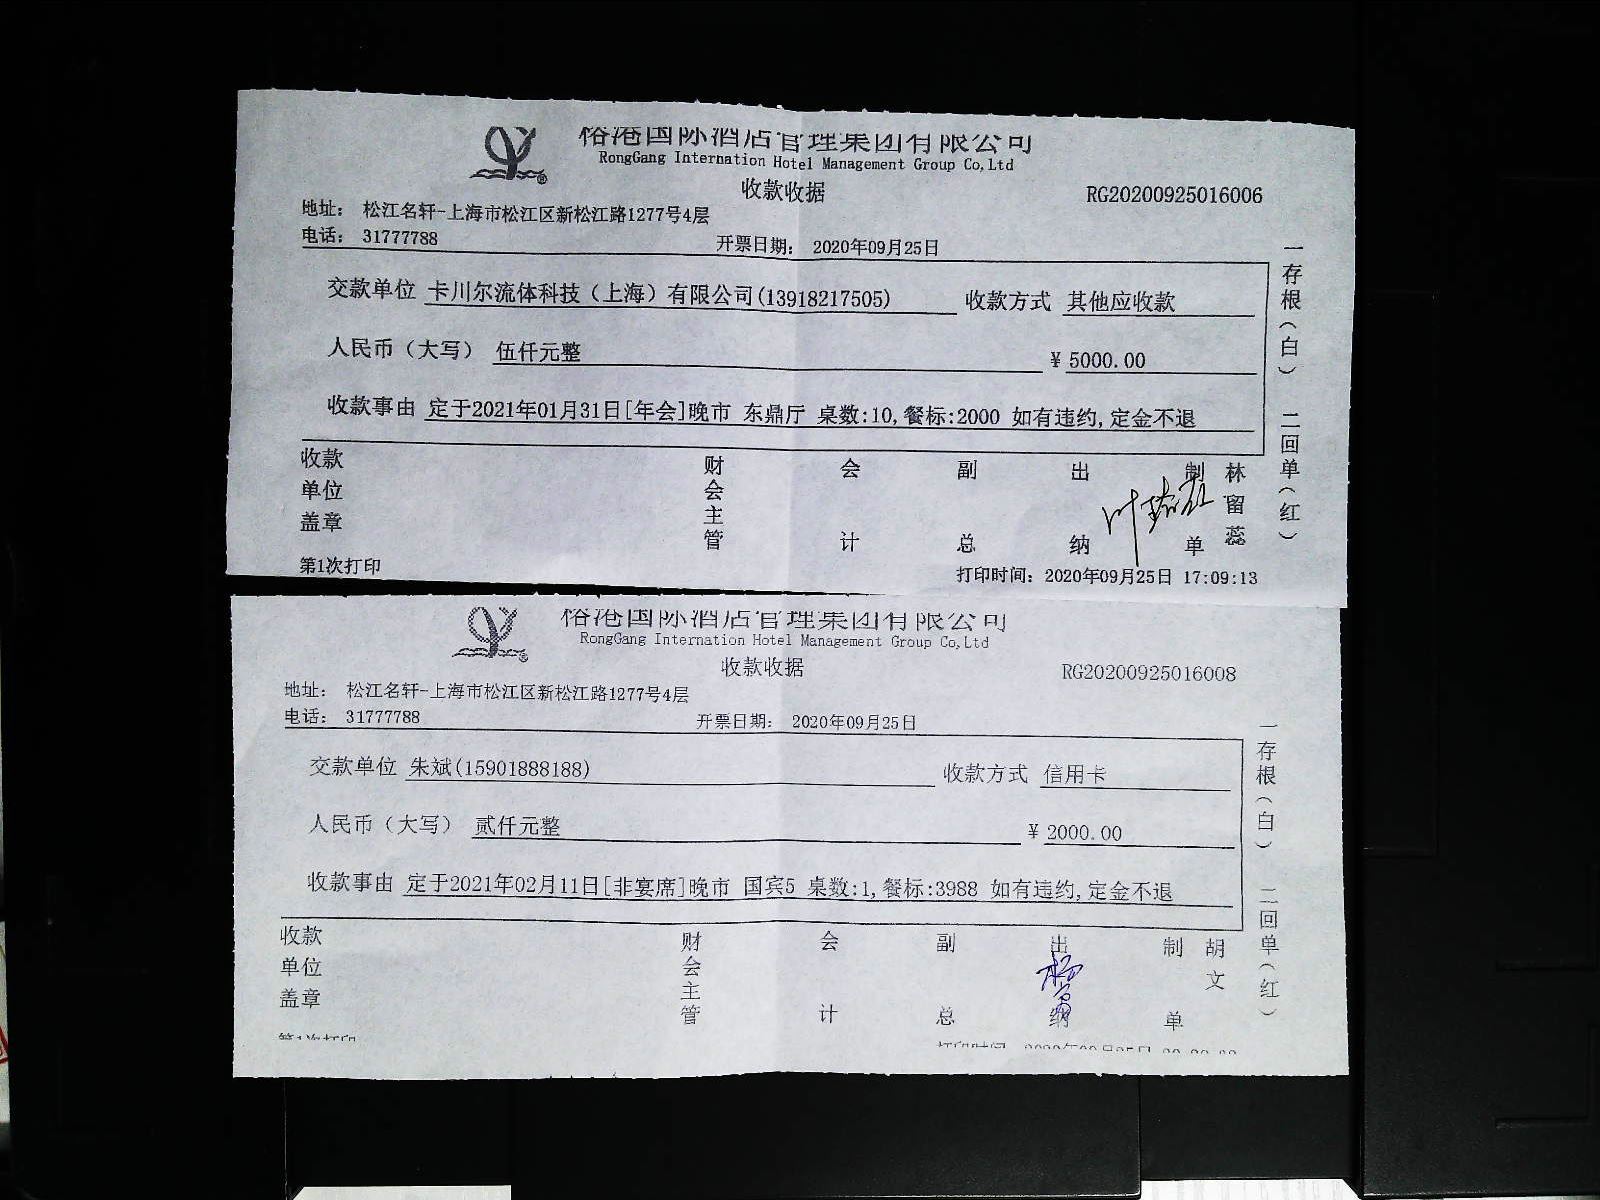 榕港国际酒店管理集团有限公司
RongGang Internation Hotel Management Group Co,Ltd
收款收据
RG20200925016006
地址： 松江名轩-上海市松江区新松江路1277号4层
电话： 31777788 开票日期： 2020年09月25日
交款单位 卡川尔流体科技（上海）有限公司(13918217505) 收款方式 其他应收款
人民币（大写） 伍仟元整 ¥ 5000.00
收款事由 定于2021年01月31日[年会]晚市 东鼎厅 桌数:10,餐标:2000 如有违约,定金不退
一存根（白） 二回单（红）
收款单位盖章 财会主管 会计 副总 出纳 制单 林留蕊
第1次打印 打印时间：2020年09月25日 17:09:13
榕港国际酒店管理集团有限公司
RongGang Internation Hotel Management Group Co,Ltd
收款收据
RG20200925016008
地址： 松江名轩-上海市松江区新松江路1277号4层
电话： 31777788 开票日期： 2020年09月25日
交款单位 朱斌(15901888188) 收款方式 信用卡
人民币（大写） 贰仟元整 ¥ 2000.00
收款事由 定于2021年02月11日[非宴席]晚市 国宾5 桌数:1,餐标:3988 如有违约,定金不退
一存根（白） 二回单（红）
收款单位盖章 财会主管 会计 副总 出纳 制单 胡文
第1次打印